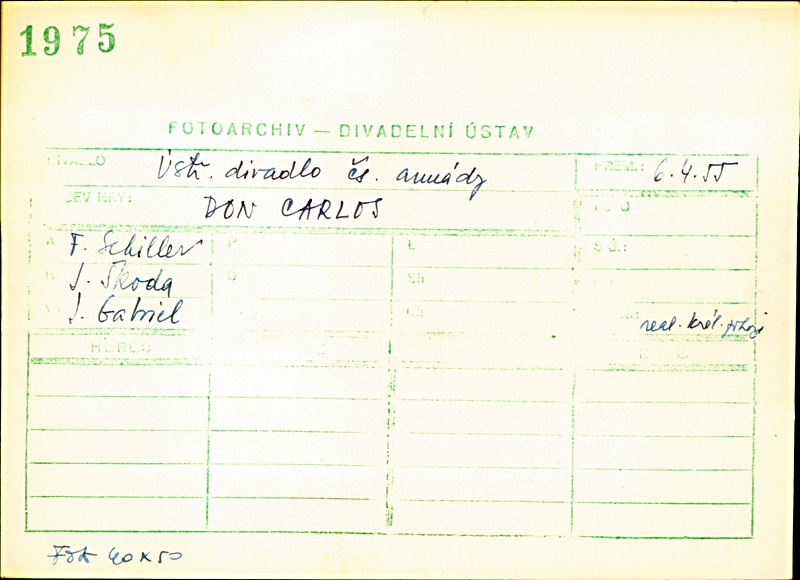 1975
FOTOARCHIV — DIVADELNÍ ÚSTAV
DIVADLO Ústř. divadlo čs. armády PREM.: 6.4.55
NÁZEV HRY: DON CARLOS
A F. Schiller P L S Ů.:
R J. Škoda O Sh
V J. Gabriel Ch
real. král.
HEREC
Fot 40x50